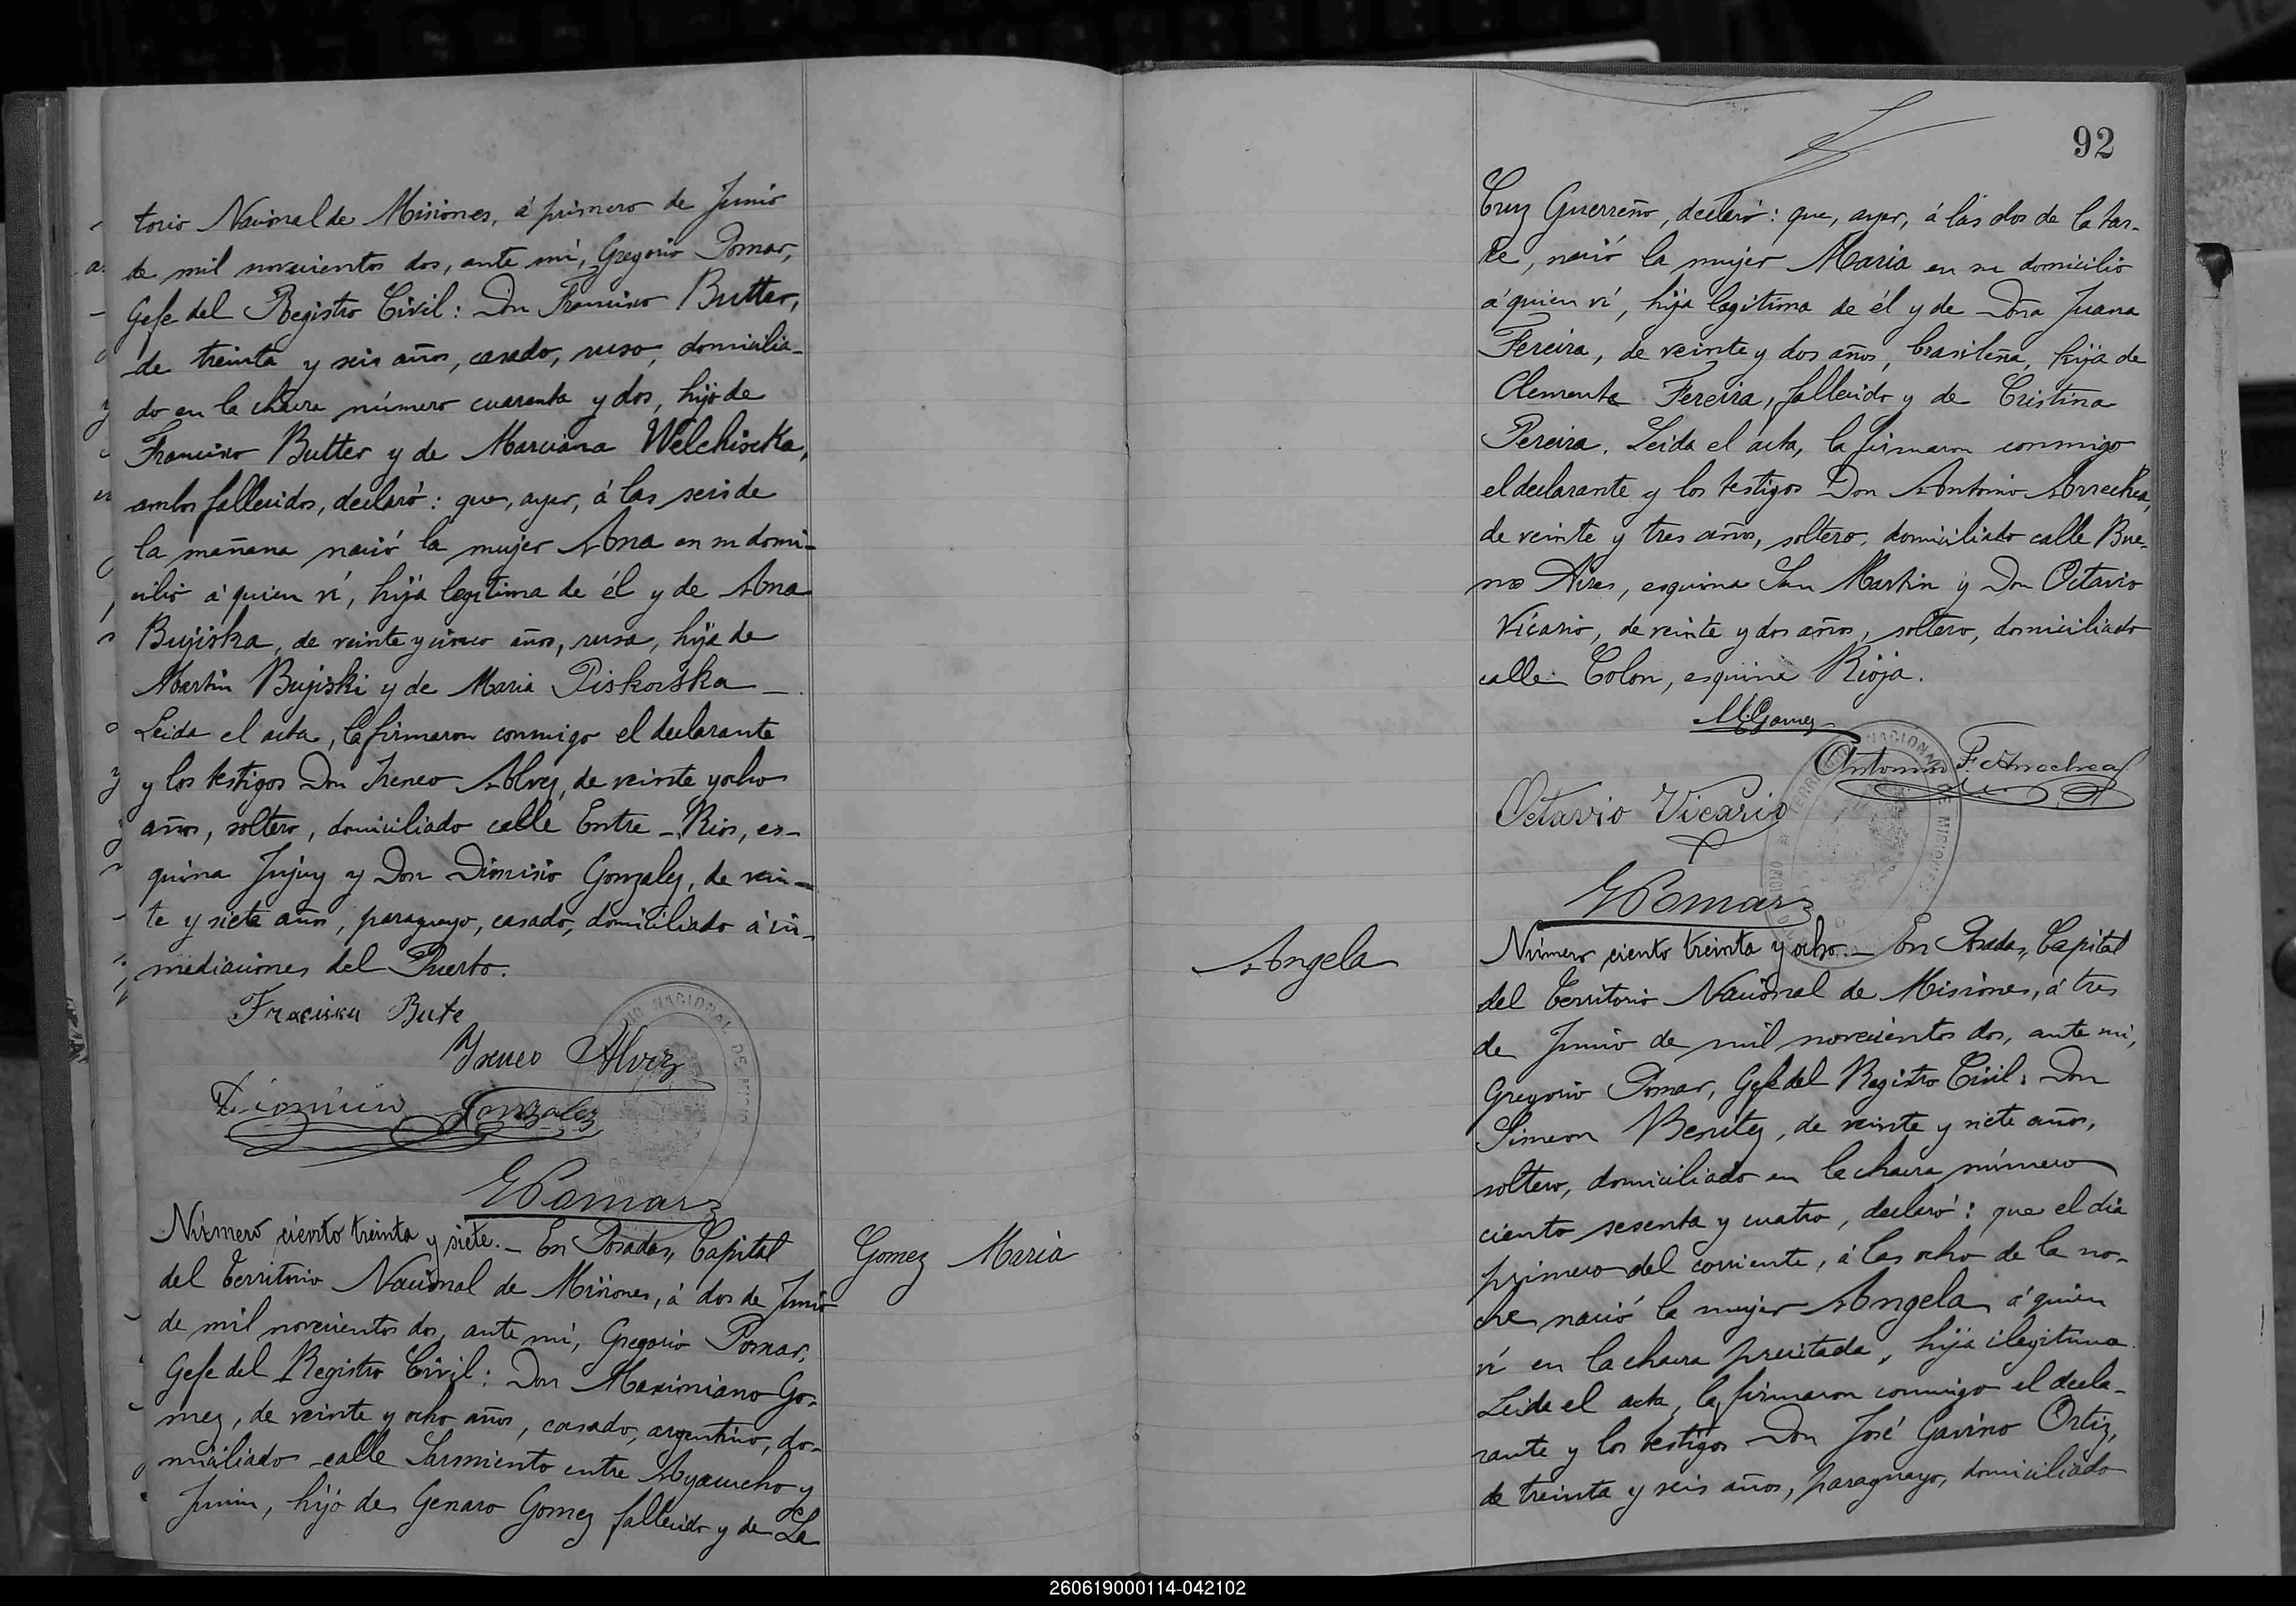 torio Nacional de Misiones, á primero de Junio
de mil novecientos dos, ante mí, Gregorio Pomar,
Gefe del Registro Civil: Don Francisco Butter,
de treinta y seis años, casado, ruso, domicilia-
do en la chacra número cuarenta y dos, hijo de
Francisco Butter y de Marciana Welchiscka,
ambos fallecidos, declaró: que, ayer, á las seis de
la mañana nació la mujer Ana en su domi-
cilio á quien ví, hija legítima de él y de Ana
Bujiska, de veinte y cinco años, rusa, hija de
Martin Bujiski y de Maria Piskorska
Leida el acta, la firmaron conmigo el declarante
y los testigos Don Ireneo Alvez, de veinte y ocho
años, soltero, domiciliado calle Entre-Rios, es-
quina Jujuy y Don Dionisio Gonzalez, de vein-
te y siete años, paraguayo, casado, domiciliado á in-
mediaciones del Puerto.
Bute
Ireneo Alvez
Gonzalez
GPomar
Número ciento treinta y siete.- En Posadas, Capital
del Territorio Nacional de Misiones, á dos de Junio
de mil novecientos dos, ante mí, Gregorio Pomar,
Gefe del Registro Civil: Don Maximiano Go-
mez, de veinte y ocho años, casado, argentino, do-
miciliado calle Sarmiento entre Ayacucho y
Junin, hijo de Genaro Gomez fallecido y de La
Gomez Maria
92
Cruz Guerreño, declaró: que, ayer, á las dos de la tar-
de, nació la mujer Maria en su domicilio
á quien ví, hija legítima de él y de Doña Juana
Fereira, de veinte y dos años, brasileña, hija de
Clemente Fereira, fallecido y de Cristina
Pereira. Leida el acta, la firmaron conmigo
el declarante y los testigos Don Antonio Arrechea,
de veinte y tres años, soltero, domiciliado calle Bue-
nos Aires, esquina San Martin y Don Octavio
Vicario, de veinte y dos años, soltero, domiciliado
calle Colon, esquina Rioja.
M. Gomez
Antonio F. Arrechea
Octavio Vicario
GPomar
Angela
Número ciento treinta y ocho.- En Posadas, Capital
del Territorio Nacional de Misiones, á tres
de Junio de mil novecientos dos, ante mí,
Gregorio Pomar, Gefe del Registro Civil: Don
Simeon Benitez, de veinte y siete años,
soltero, domiciliado en la chacra número
ciento sesenta y cuatro, declaró: que el dia
primero del corriente, á las ocho de la no-
che nació la mujer Angela á quien
ví en la chacra precitada, hija ilegítima.
Leida el acta, la firmaron conmigo el decla-
rante y los testigos Don José Gavino Ortiz,
de treinta y seis años, paraguayo, domiciliado
260619000114-042102